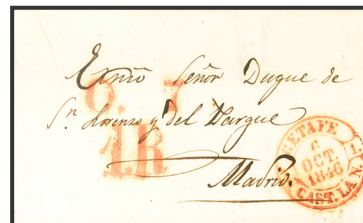 Exmo Señor Duque de
Sn. Lorenzo y del Parque
1R
Madrid.
GETAFE
6
OCT.
1846
CAST. LA N.